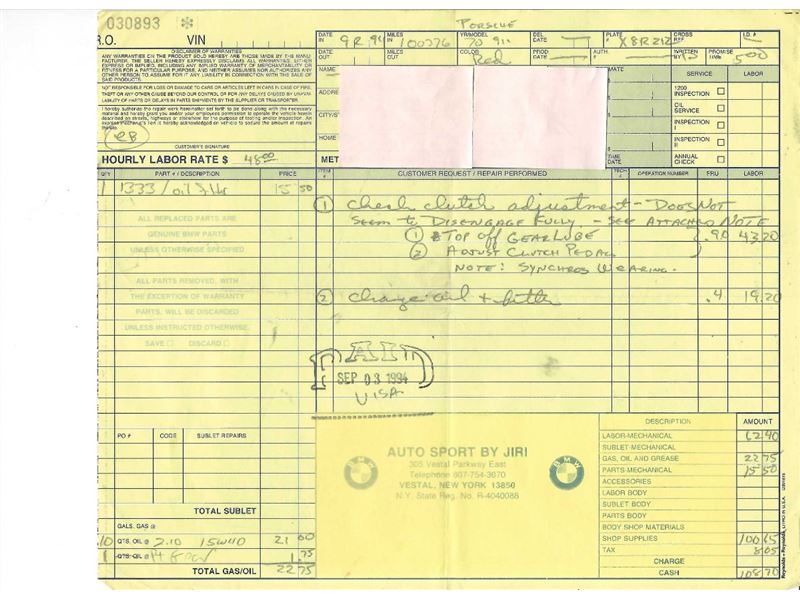 030893 *
R.O. VIN
DISCLAIMER OF WARRANTIES
ANY WARRANTIES ON THE PRODUCT SOLD HEREBY ARE THOSE MADE BY THE MANU-
FACTURER. THE SELLER HEREBY EXPRESSLY DISCLAIMS ALL WARRANTIES, EITHER
EXPRESS OR IMPLIED, INCLUDING ANY IMPLIED WARRANTY OF MERCHANTABILITY OR
FITNESS FOR A PARTICULAR PURPOSE, AND NEITHER ASSUMES NOR AUTHORIZES ANY
OTHER PERSON TO ASSUME FOR IT ANY LIABILITY IN CONNECTION WITH THE SALE OF
SAID PRODUCTS.
NOT RESPONSIBLE FOR LOSS OR DAMAGE TO CARS OR ARTICLES LEFT IN CARS IN CASE OF FIRE,
THEFT OR ANY OTHER CAUSE BEYOND OUR CONTROL OR FOR ANY DELAYS CAUSED BY UNAVAI-
LABILITY OF PARTS OR DELAYS IN PARTS SHIPMENTS BY THE SUPPLIER OR TRANSPORTER.
I hereby authorize the repair work hereinafter set forth to be done along with the necessary
material and hereby grant you and/or your employees permission to operate the vehicle herein
described on streets, highways or elsewhere for the purpose of testing and/or inspection. An
express mechanic's lien is hereby acknowledged on vehicle to secure the amount of repairs
thereto.
CUSTOMER'S SIGNATURE
HOURLY LABOR RATE $ 48.00
PORSCHE
DATE IN MILES IN 100776 YR/MODEL 70 911 DEL. DATE PLATE # X8R212 CROSS REF I.D. #
DATE OUT MILES OUT Red PROD. DATE AUTH. WRITTEN BY PROMISE TIME 5:00
NAME
ADDRE
CITY/S
HOME
MET
MATE
TIME
DATE
SERVICE LABOR
1200 INSPECTION
OIL SERVICE
INSPECTION I
INSPECTION II
ANNUAL CHECK
QTY PART # / DESCRIPTION PRICE ITEM # CUSTOMER REQUEST / REPAIR PERFORMED TECH # OPERATION NUMBER FRU LABOR
1 1333 / oil filter 15 50
① Check clutch adjustment - DOES NOT
SEEM to DISENGAGE FULLY - SEE ATTACHED NOTE
① TOP off GEAR LUBE .90 43.20
② ADJUST CLUTCH PEDAL
NOTE: SYNCHROS WEARING.
② Change oil + filter .4 19.20
ALL REPLACED PARTS ARE
GENUINE BMW PARTS
UNLESS OTHERWISE SPECIFIED
ALL PARTS REMOVED, WITH
THE EXCEPTION OF WARRANTY
PARTS, WILL BE DISCARDED
UNLESS INSTRUCTED OTHERWISE.
SAVE DISCARD
PAID
SEP 03 1994
VISA
PO # CODE SUBLET REPAIRS
TOTAL SUBLET
GALS. GAS @
10 QTS. OIL @ 2.10 15W40 21 00
1 QTS. OIL @ 1.75
TOTAL GAS/OIL 22 75
BMW
AUTO SPORT BY JIRI
305 Vestal Parkway East
Telephone 607-754-3070
VESTAL, NEW YORK 13850
N.Y. State Reg. No. R-4040088
BMW
DESCRIPTION AMOUNT
LABOR-MECHANICAL 62 40
SUBLET-MECHANICAL
GAS, OIL AND GREASE 22 75
PARTS-MECHANICAL 15 50
ACCESSORIES
LABOR BODY
SUBLET BODY
PARTS BODY
BODY SHOP MATERIALS
SHOP SUPPLIES 100 65
TAX 8 05
CHARGE
CASH 108 70